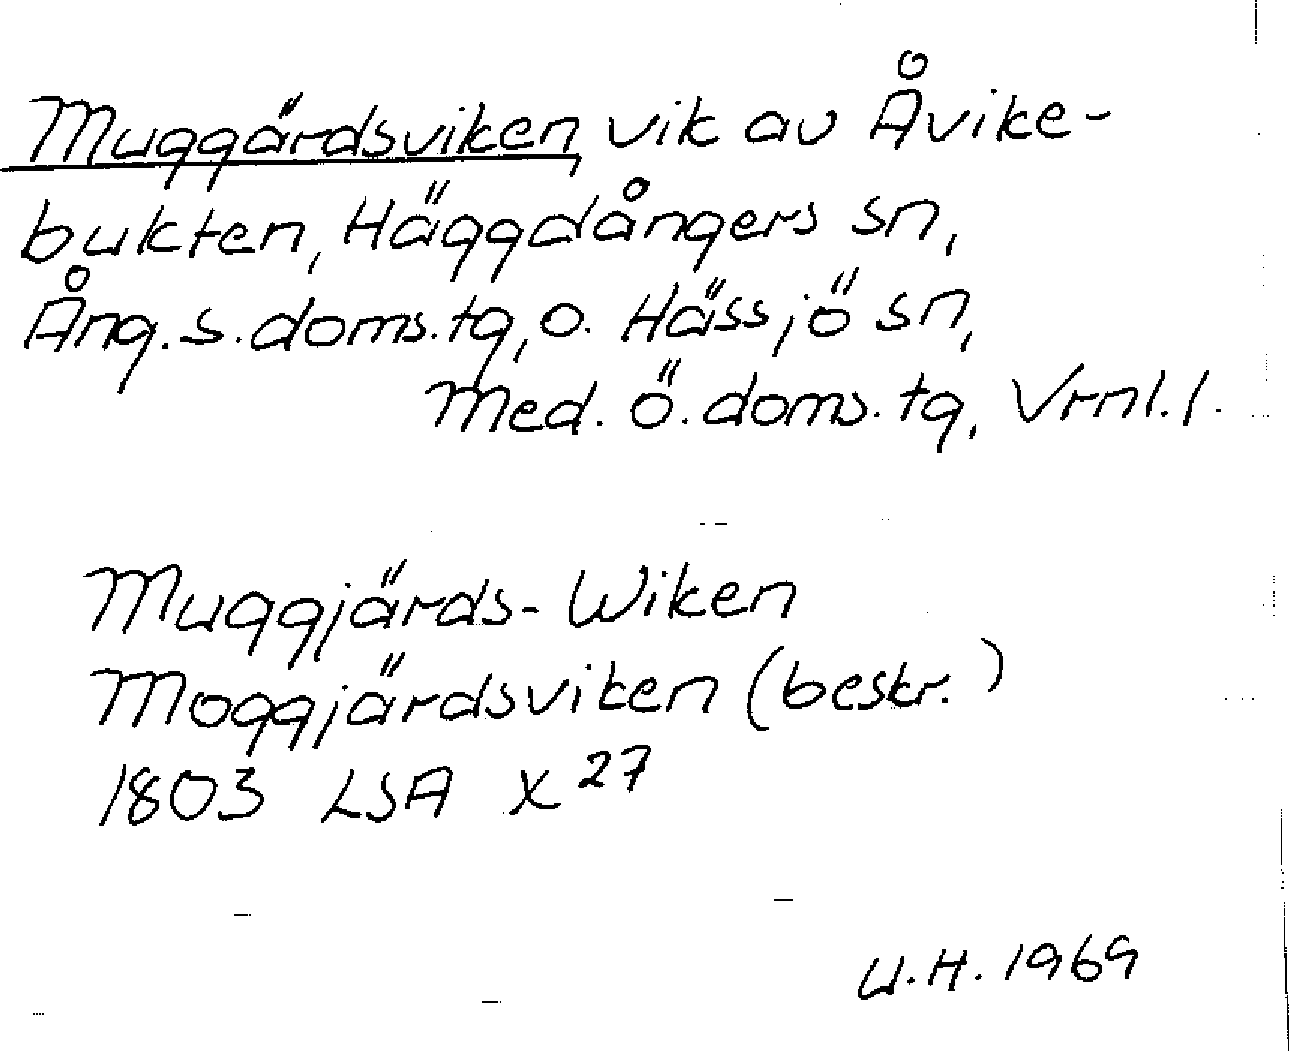 Muggärdsviken, vik av Åvike-
bukten, Häggdångers sn,
Ång. s. doms. tg, o. Hässjö sn,
Med. ö. doms. tg, Vrnl. l.
Muggjärds-Wiken
Moggjärdsviken (beskr.)
1803 LSA X 27
U.H. 1969